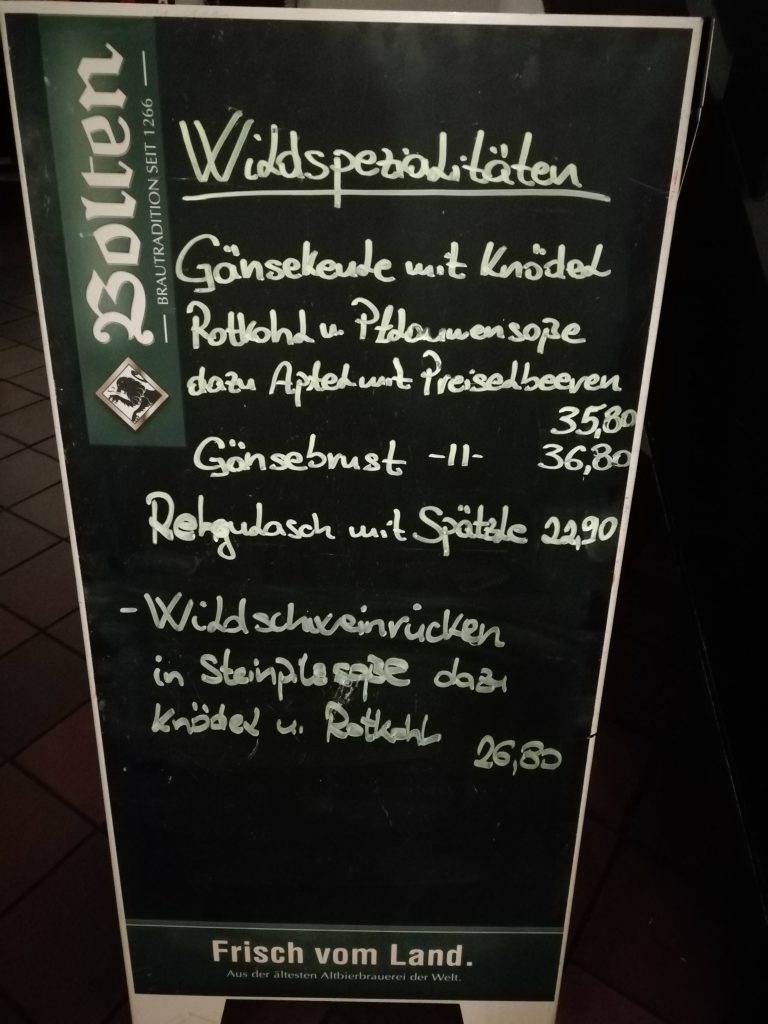 Bolten
BRAUTRADITION SEIT 1266
Wildspezialitäten
Gänsekeule mit Knödel
Rotkohl u. Pflaumensoße
dazu Apfel mit Preiselbeeren
35,80
Gänsebrust -II- 36,80
Rehgulasch mit Spätzle 22,90
- Wildschweinrücken
in Steinpilzsoße dazu
Knödel u. Rotkohl
26,80
Frisch vom Land.
Aus der ältesten Altbierbrauerei der Welt.